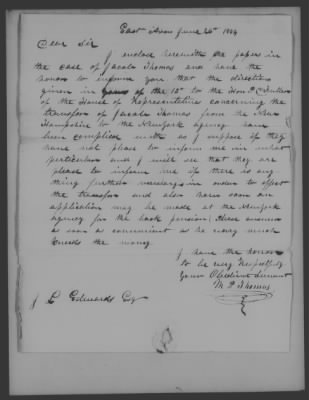 East Avon June 20th 1844
Dear Sir
I enclose herewith the papers in
the case of Jacob Thomas and have the
honor to inform you that the directions
given in yours of the 12th to the Hon
of the House of Representatives concerning the
transfer of Jacob Thomas from the New
Hampshire to the New York agency have
been complied with as I suppose if they
have not please to inform me in what
particulars and I will see that they are
please to inform me if there is any
thing further necessary in order to effect
the transfer and also how soon an
application may be made at the New York
agency for the back pension. Please answer
as soon as convenient as he very much
needs the money.
I have the honor
to be very Respectfully
Your Obedient Servant
M P Thomas
J L Edwards Esq